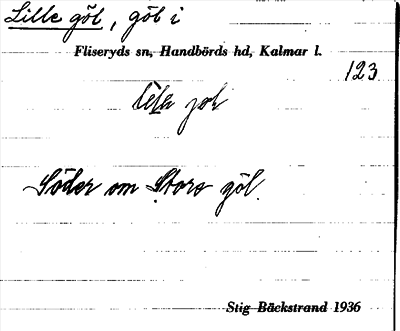 Lille göl, göl i
Fliseryds sn, Handbörds hd, Kalmar l.
123
Söder om Stora göl.
Stig Bäckstrand 1936